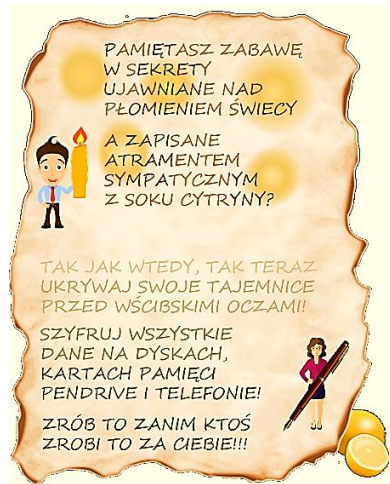 PAMIĘTASZ ZABAWĘ
W SEKRETY
UJAWNIANE NAD
PŁOMIENIEM ŚWIECY
A ZAPISANE
ATRAMENTEM
SYMPATYCZNYM
Z SOKU CYTRYNY?
TAK JAK WTEDY, TAK TERAZ
UKRYWAJ SWOJE TAJEMNICE
PRZED WŚCIBSKIMI OCZAMI!
SZYFRUJ WSZYSTKIE
DANE NA DYSKACH,
KARTACH PAMIĘCI
PENDRIVE I TELEFONIE!
ZRÓB TO ZANIM KTOŚ
ZROBI TO ZA CIEBIE!!!